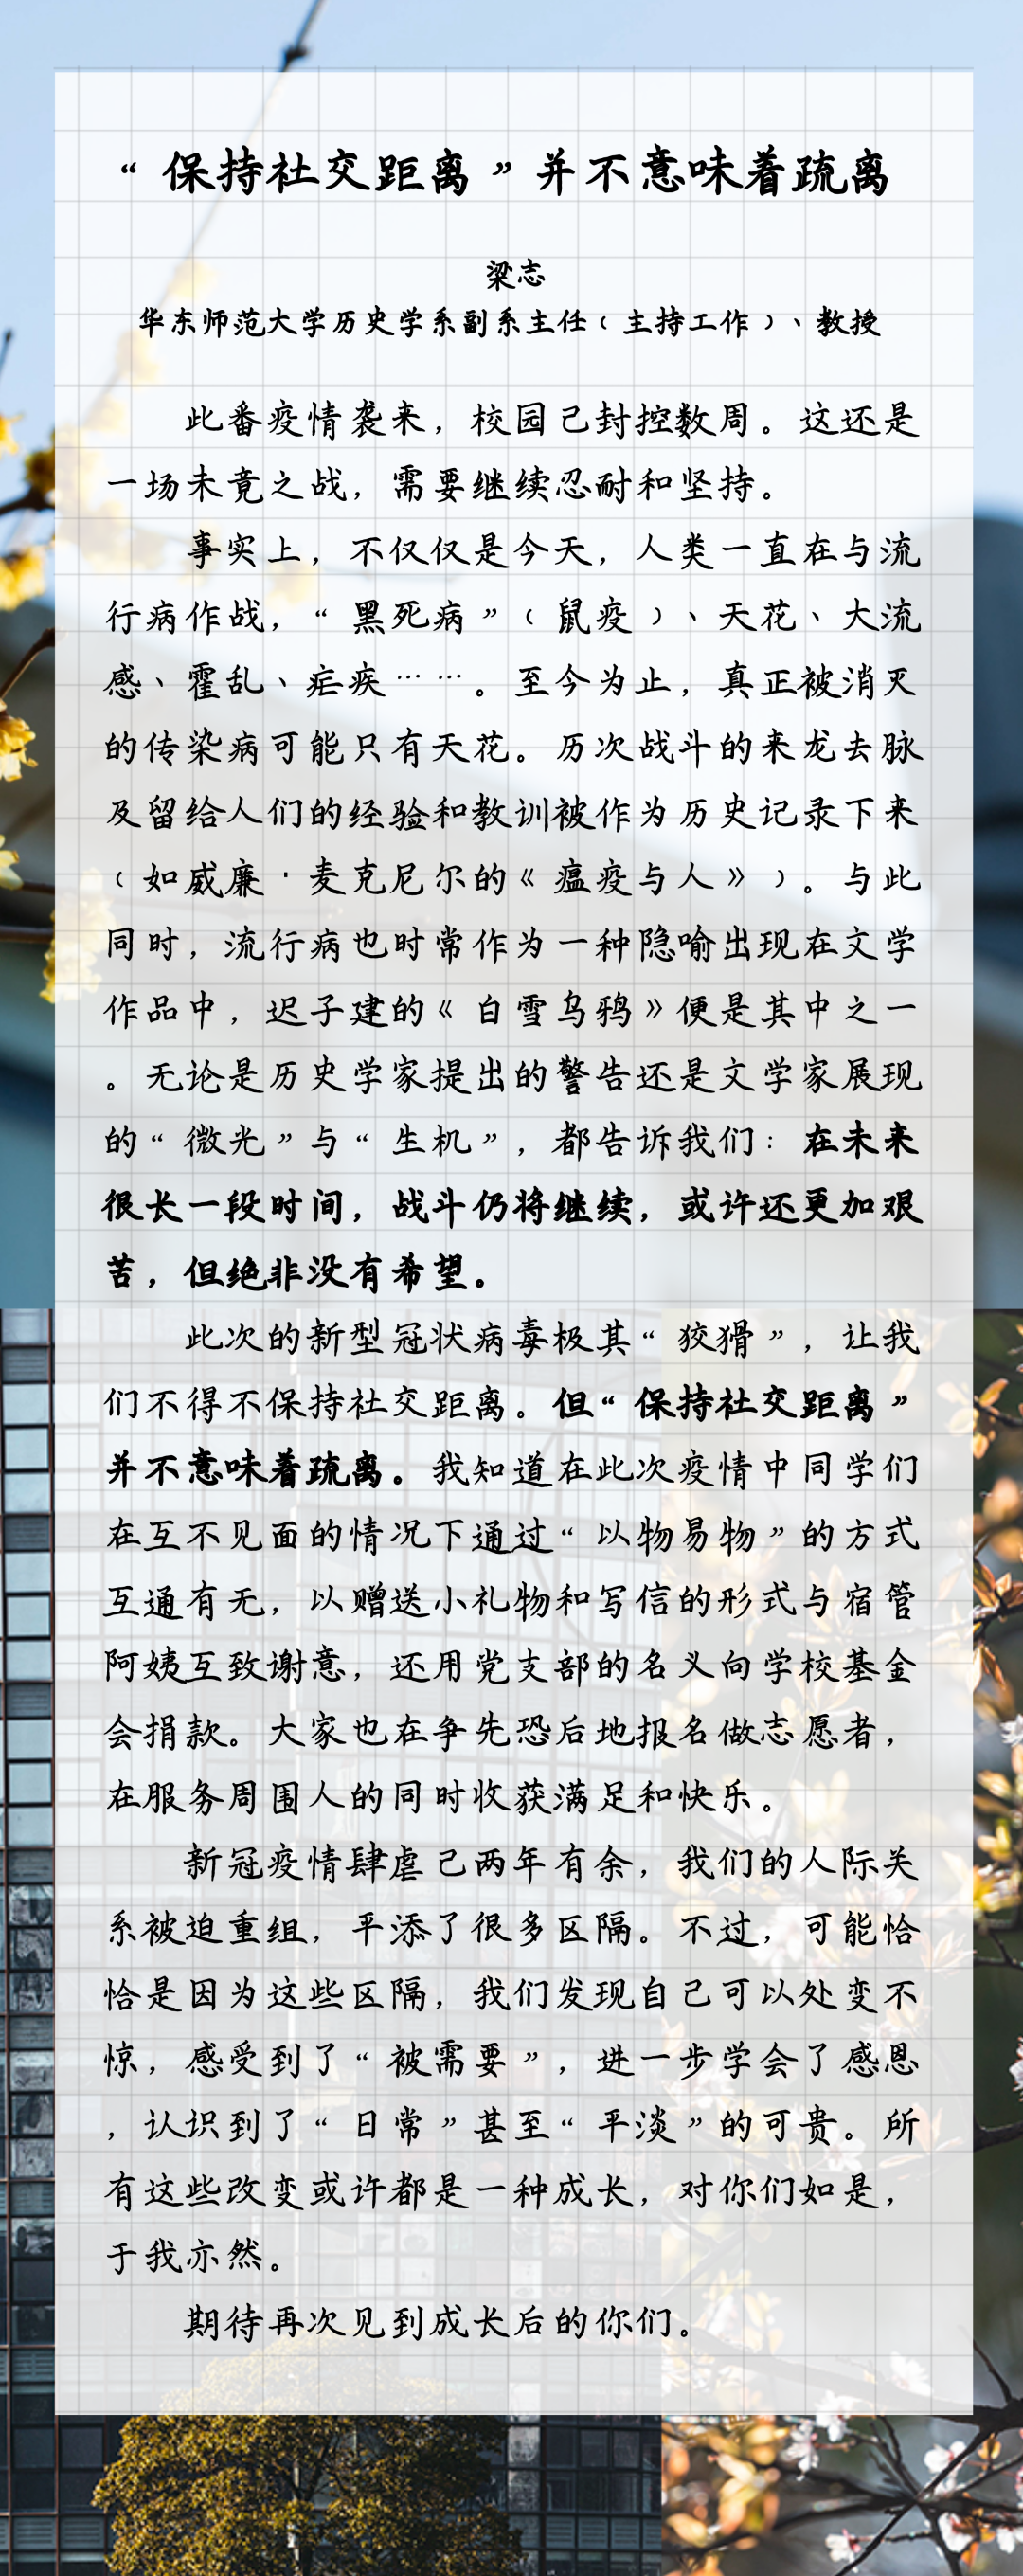 “保持社交距离”并不意味着疏离
梁志
华东师范大学历史学系副系主任（主持工作）、教授
此番疫情袭来，校园已封控数周。这还是
一场未竟之战，需要继续忍耐和坚持。
事实上，不仅仅是今天，人类一直在与流
行病作战，“黑死病”（鼠疫）、天花、大流
感、霍乱、疟疾……。至今为止，真正被消灭
的传染病可能只有天花。历次战斗的来龙去脉
及留给人们的经验和教训被作为历史记录下来
（如威廉·麦克尼尔的《瘟疫与人》）。与此
同时，流行病也时常作为一种隐喻出现在文学
作品中，迟子建的《白雪乌鸦》便是其中之一
。无论是历史学家提出的警告还是文学家展现
的“微光”与“生机”，都告诉我们：在未来
很长一段时间，战斗仍将继续，或许还更加艰
苦，但绝非没有希望。
此次的新型冠状病毒极其“狡猾”，让我
们不得不保持社交距离。但“保持社交距离”
并不意味着疏离。我知道在此次疫情中同学们
在互不见面的情况下通过“以物易物”的方式
互通有无，以赠送小礼物和写信的形式与宿管
阿姨互致谢意，还用党支部的名义向学校基金
会捐款。大家也在争先恐后地报名做志愿者，
在服务周围人的同时收获满足和快乐。
新冠疫情肆虐已两年有余，我们的人际关
系被迫重组，平添了很多区隔。不过，可能恰
恰是因为这些区隔，我们发现自己可以处变不
惊，感受到了“被需要”，进一步学会了感恩
，认识到了“日常”甚至“平淡”的可贵。所
有这些改变或许都是一种成长，对你们如是，
于我亦然。
期待再次见到成长后的你们。